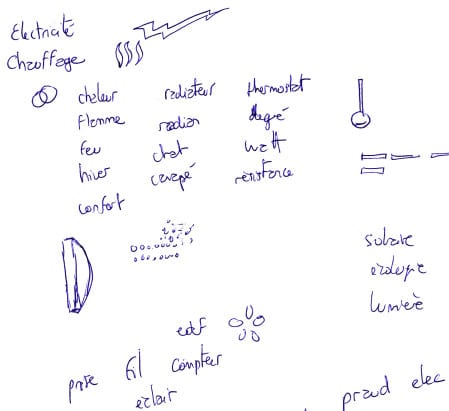 Electricité
Chauffage
chaleur radiateur thermostat
flamme radian degré
feu chat watt
hiver canapé résistance
confort
solaire
écologie
lumière
edf
prise fil compteur
éclair
elec